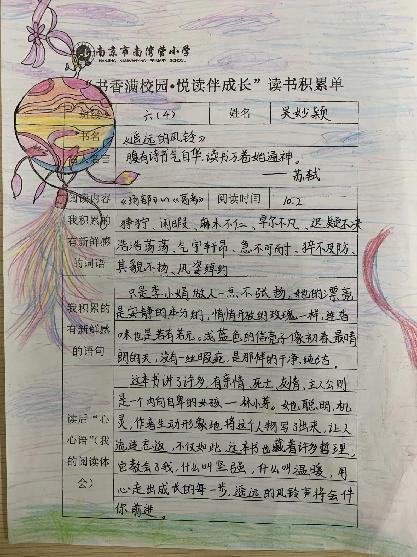 南京市南湾营小学
NANJING NANWANYING PRIMARY SCHOOL
“书香满校园·悦读伴成长”读书积累单
班级 六(4) 姓名 吴妙颖
书名 《遥远的风铃》
名人名言 腹有诗书气自华,读书万卷始通神。
——苏轼
阅读内容 阅读时间 10.2
我积累的有新鲜感的词语
狰狞、闲暇、麻木不仁、卓尔不凡、迟疑不决
浩浩荡荡、气宇轩昂、急不可耐、猝不及防、
其貌不扬、风姿绰约
我积累的有新鲜感的语句
只是李小娟做人一点不张扬,她的漂亮
是安静的本分的,悄悄开放的玫瑰一样,连香
味也是若有若无,浅蓝色的信壳子像初春最晴
朗的天,没有一丝瑕疵,是那样的干净、纯洁。
读后“心心语”(我的阅读体会)
这本书讲了许多,有亲情、死亡、友情,主人公则
是个内向自卑的女孩——林小芽。她聪明,机
灵,作者生动形象地将这个人物写了出来,让人
流连忘返,不仅如此,这本书也藏着许多哲理,
它教会了我,什么叫坚强,什么叫温暖,用
心走出成长的每一步,遥远的风铃声将会伴
你前进。